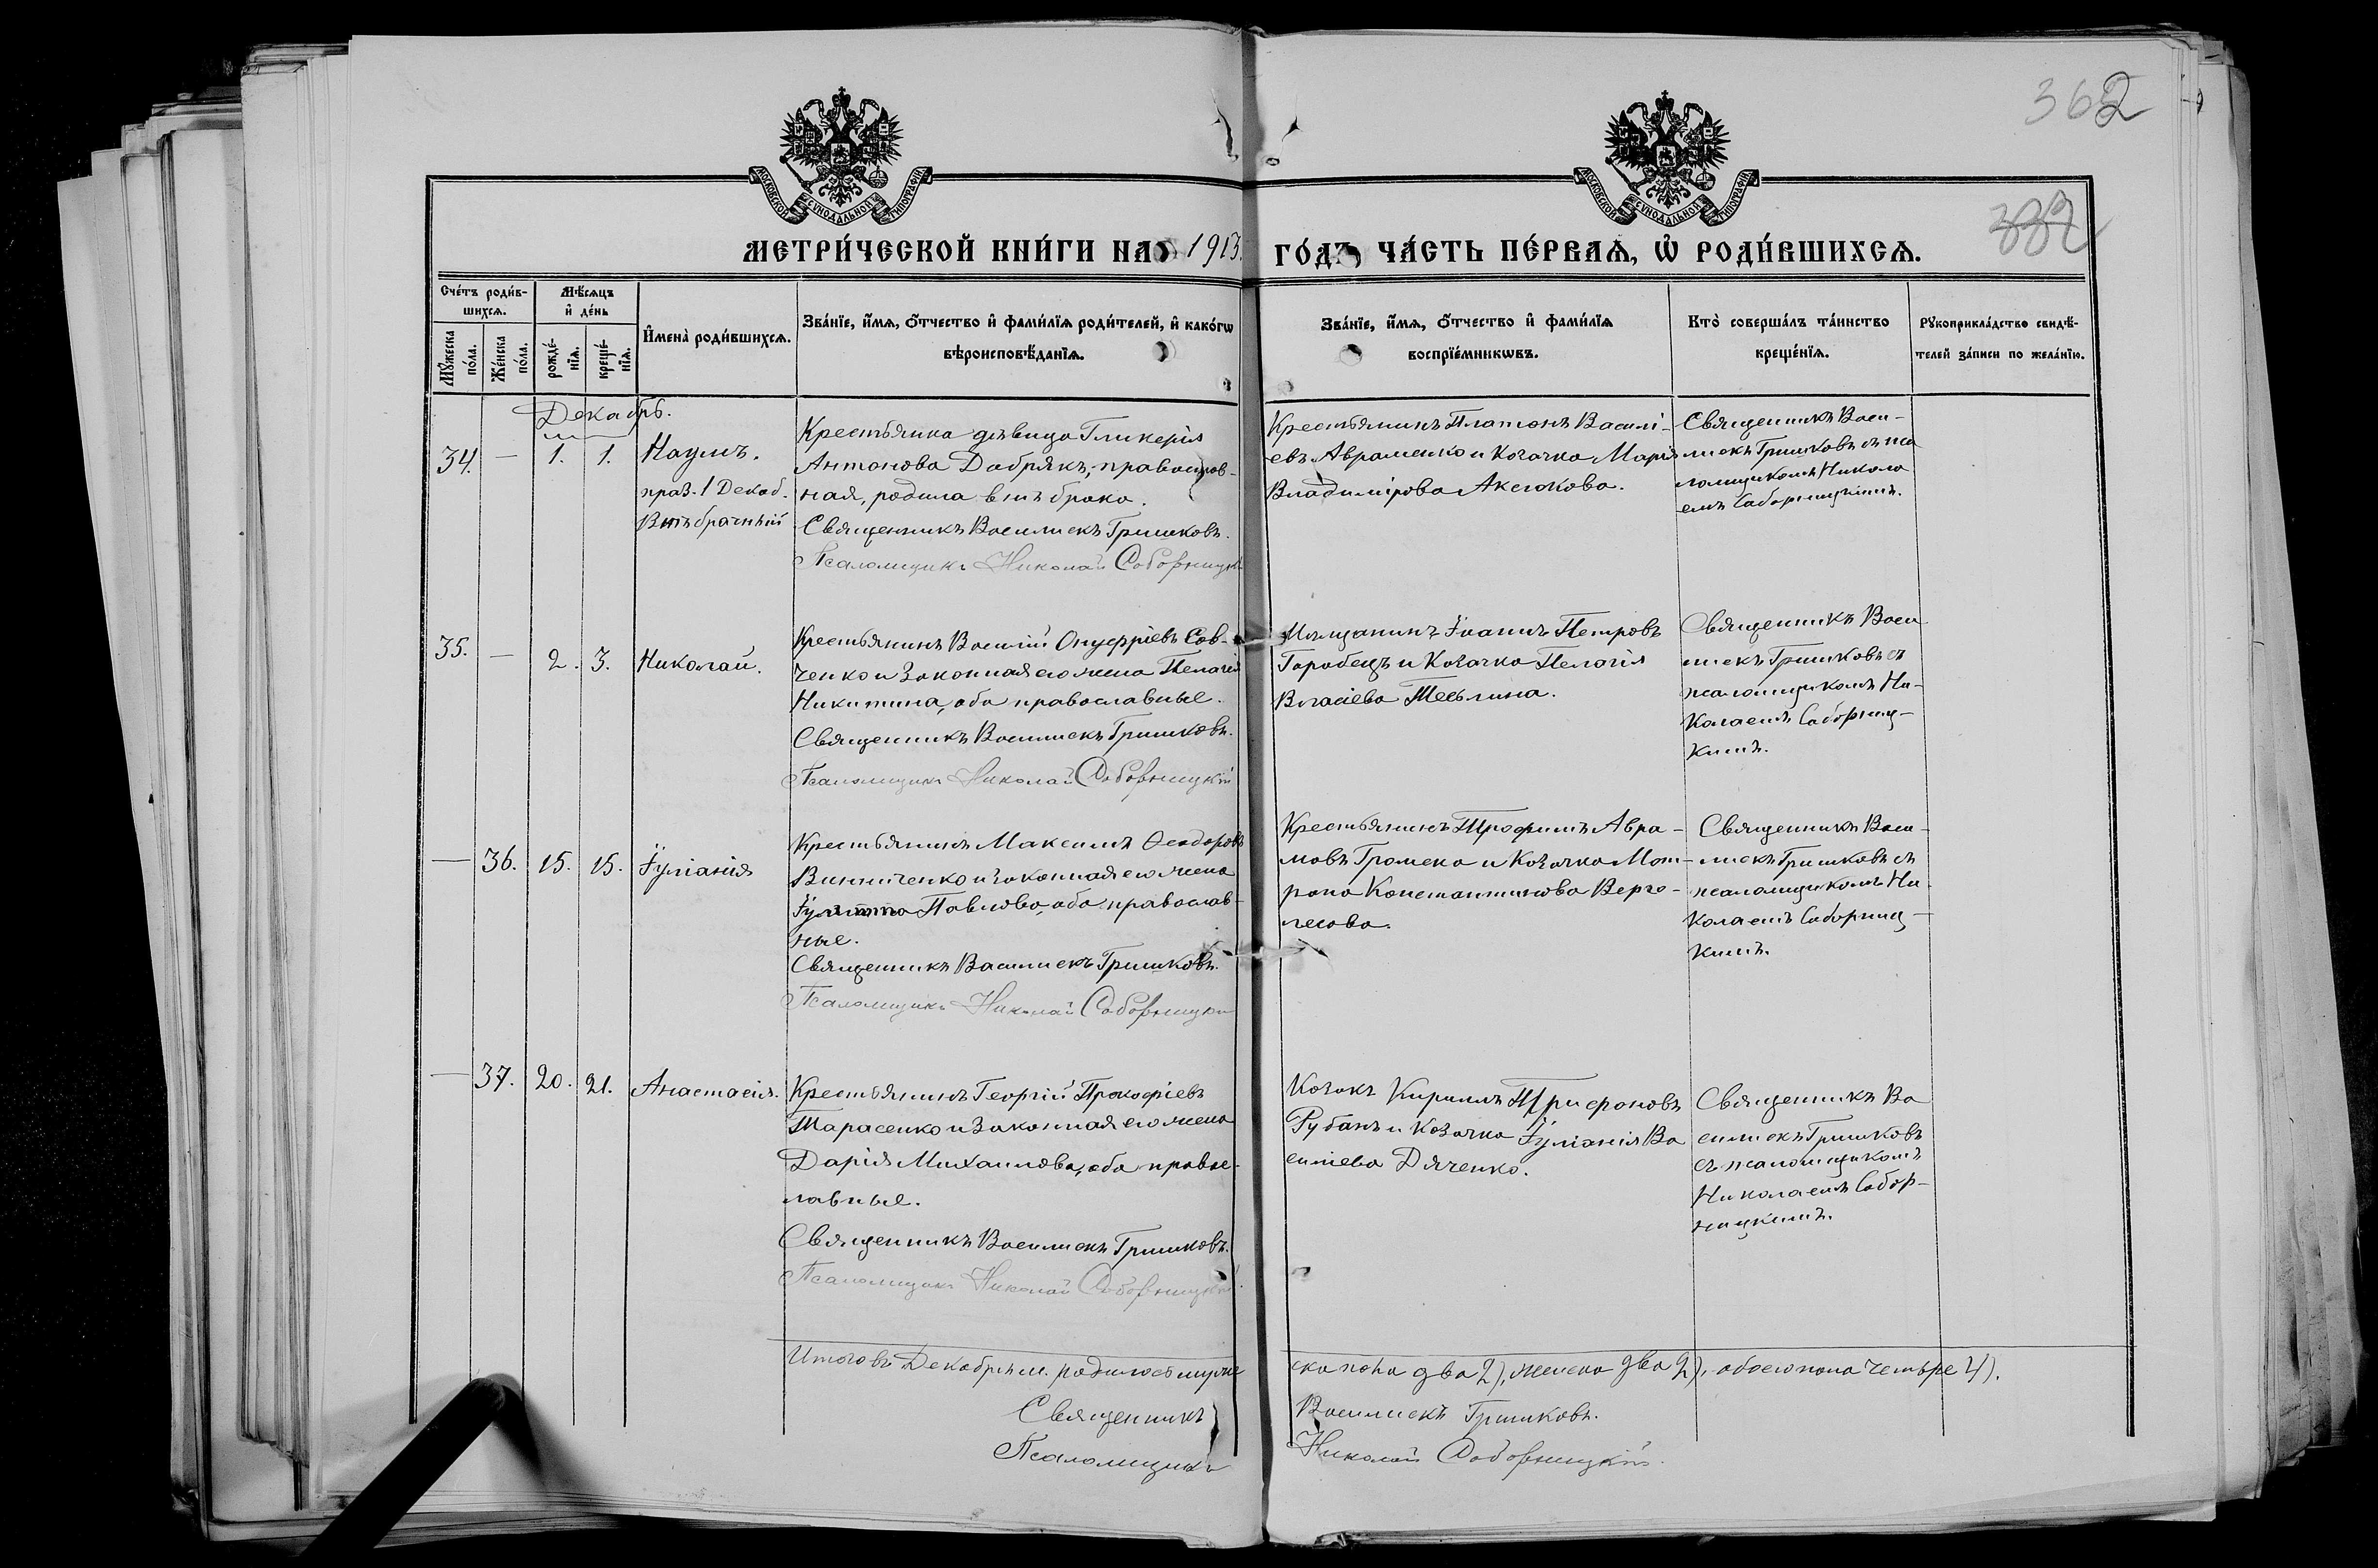 362
382
МОСКОВСКОЙ СѴНОДАЛЬНОЙ ТИПОГРАФІИ
МОСКОВСКОЙ СѴНОДАЛЬНОЙ ТИПОГРАФІИ
МЕТРИ́ЧЕСКОЙ КНИ́ГИ НА 1913.
ГО́ДЪ ЧА́СТЬ ПЕ́РВАѦ, Ѡ҆ РОДИ́ВШИХСѦ.
Сче́тъ роди́в-
шихсѧ.
Мꙋ́жеска
по́ла.
Же́нска
по́ла.
Мѣ́сѧцъ
и҆ де́нь
рожде́-
нїѧ.
креще́-
нїѧ.
И҆мена̀ роди́вшихсѧ.
Зва́нїе, и҆́мѧ, ѻ҆́тчество и҆ фами́лїѧ роди́телей, и҆ како́гѡ
вѣроисповѣ́данїѧ.
Зва́нїе, и҆́мѧ, ѻ҆́тчество и҆ фами́лїѧ
воспрїе́мникѡвъ.
Кто̀ соверша́лъ та́инство
креще́нїѧ.
Рꙋкоприкла́дство свидѣ́-
телей за́писи по жела́нїю.
Декабрь.
34. — 1. 1. Наумъ.
праз. 1 Декаб.
Внѣбрачный
Крестьянка дѣвица Гликерія
Антонова Добрякъ, православ-
ная, родила внѣ брака.
Священникъ Василискъ Гришковъ.
Псаломщикъ Николай Соборницкій
Крестьянинъ Платонъ Василі-
евъ Авраменко и Козачка Марія
Владимірова Аксюкова.
Священникъ Васи-
лискъ Гришковъ съ пса
ломщикомъ Никола
емъ Соборницкимъ.
35. — 2. 3. Николай.
Крестьянинъ Василій Онуфріевъ Сав-
ченко и законная его жена Пелагія
Никитина, оба православные.
Священникъ Василискъ Гришковъ.
Псаломщикъ Николай Соборницкій
Мѣщанинъ Іоаннъ Петровъ
Горобецъ и Козачка Пелагія
Власіева
Священникъ Васи
лискъ Гришковъ съ
псаломщикомъ Ни-
колаемъ Соборниц-
кимъ.
— 36. 15. 15. Іуліанія
Крестьянинъ Максимъ Ѳеодоровъ
Винниченко и законная его жена
Павлова, оба православ-
ные.
Священникъ Василискъ Гришковъ.
Псаломщикъ Николай Соборницкій
Крестьянинъ Трофимъ Авра-
мовъ Громека и Козачка Мат-
рона Константинова Верго-
лесова.
Священникъ Васи-
лискъ Гришковъ съ
псаломщикомъ Ни
колаемъ Соборниц-
кимъ.
— 37. 20. 21. Анастасія.
Крестьянинъ Георгій Прокофіевъ
Тарасенко и законная его жена
Дарія Михаилова, оба правос-
лавные.
Священникъ Василискъ Гришковъ.
Псаломщикъ Николай Соборницкій.
Козакъ Кириллъ Трифоновъ
Рубанъ и Козачка Іуліанія Ва
силіева Дяченко.
Священникъ Ва
силискъ Гришковъ
съ псаломщикомъ
Николаемъ Собор-
ницкимъ.
Итого въ Декабрѣ м. родилось муже
ска пола два 2), женска два 2), обоего пола четыре 4).
Священникъ Василискъ Гришковъ.
Псаломщикъ Николай Соборницкій.